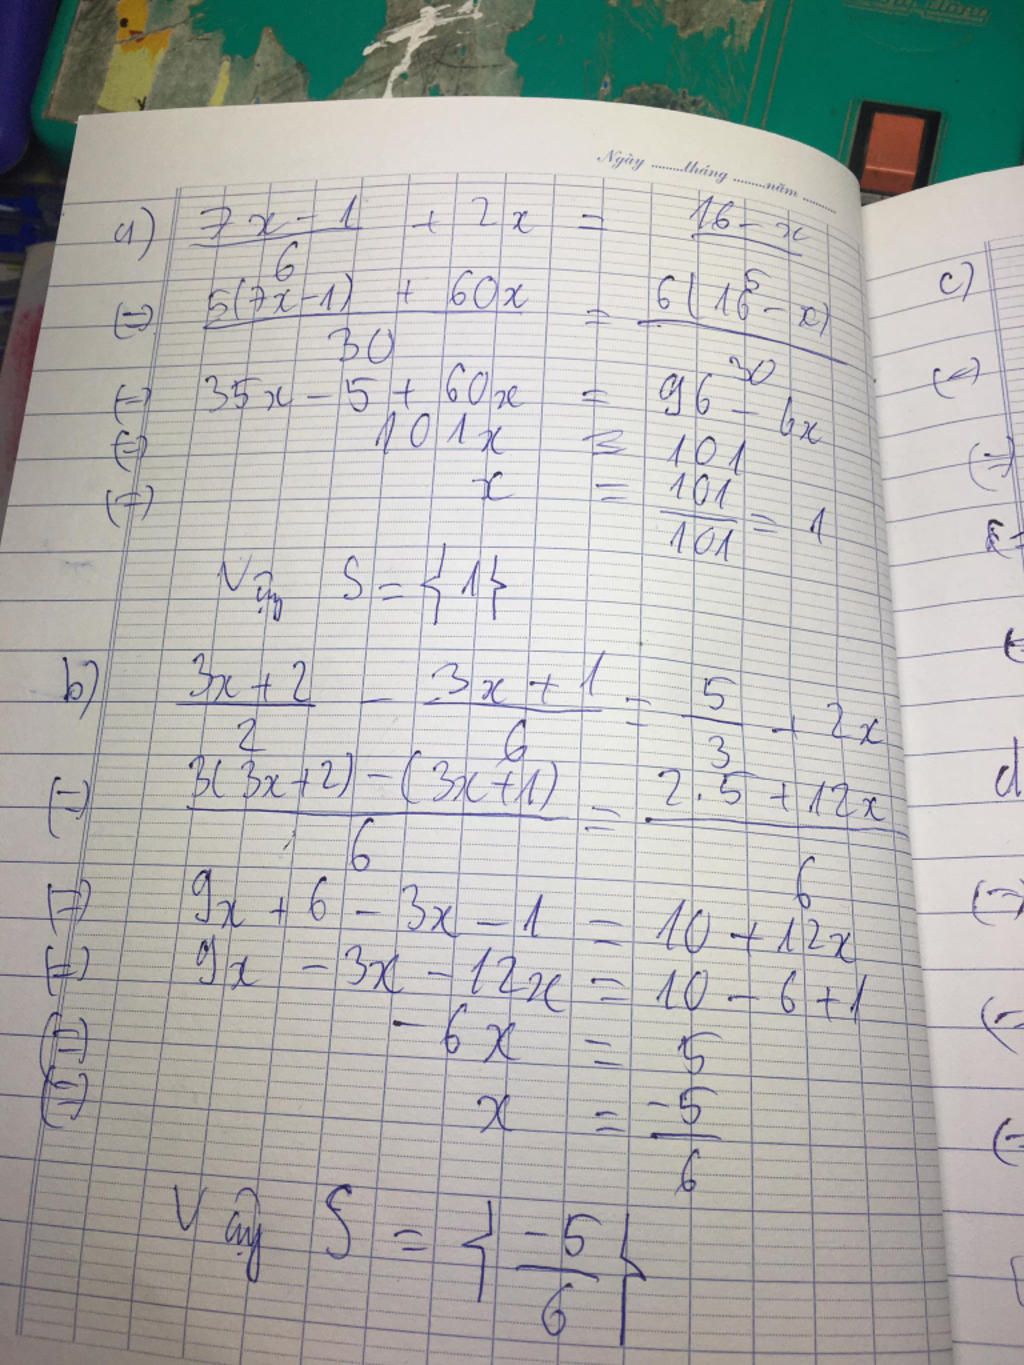 Ngày ........tháng ........năm ........
a) (7x - 1)/6 + 2x = (16 - x)/5
(=) (5(7x-1) + 60x)/30 = (6(16 - x))/30
(=) 35x - 5 + 60x = 96 - 6x
(=) 101x = 101
(=) x = 101/101 = 1
Vậy S = {1}
b) (3x + 2)/2 - (3x + 1)/6 = 5/3 + 2x
(=) (3(3x+2) - (3x+1))/6 = (2.5 + 12x)/6
(=) 9x + 6 - 3x - 1 = 10 + 12x
(=) 9x - 3x - 12x = 10 - 6 + 1
(=) -6x = 5
(=) x = -5/6
Vậy S = {-5/6}
c)
d